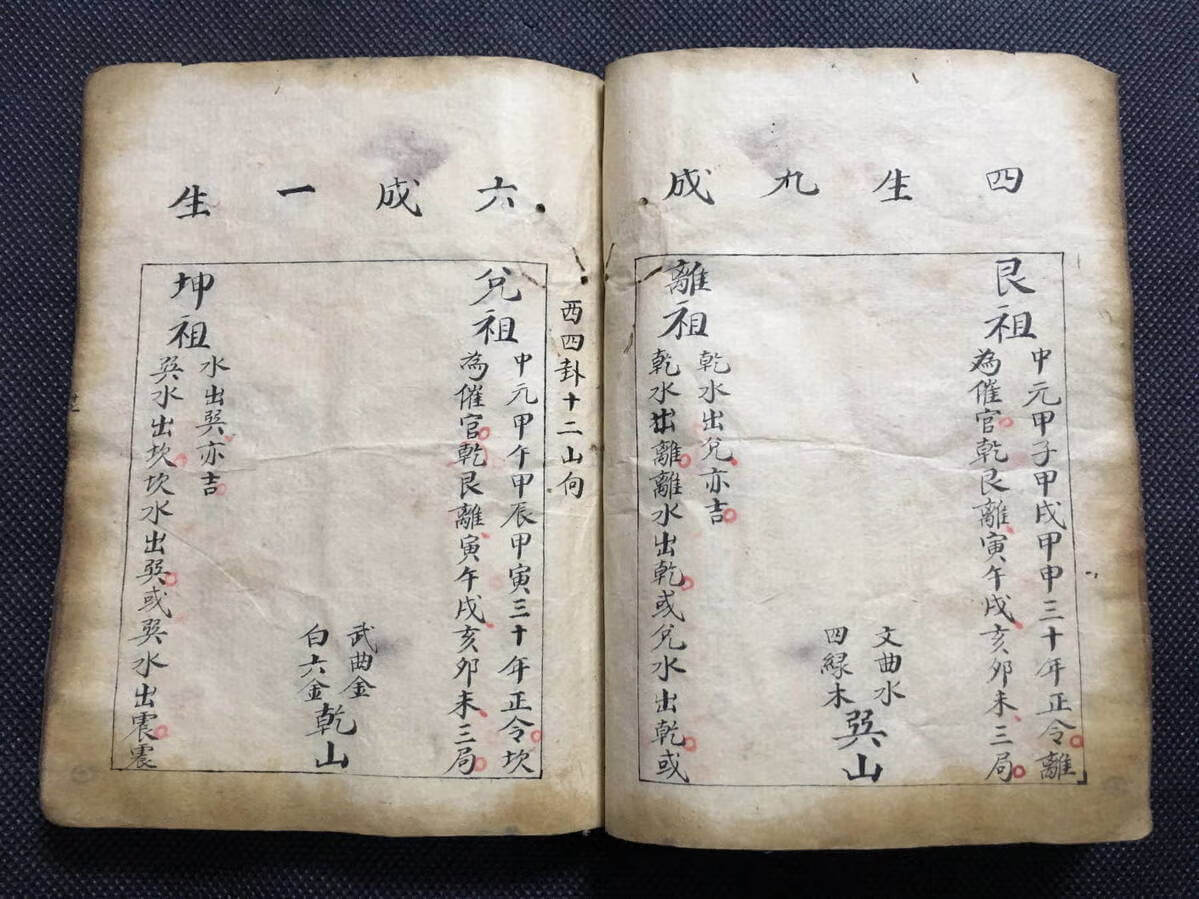 四生九成
艮祖
中元甲子甲戌甲申三十年正令離
為催官乾艮離寅午戌亥卯未三局
文曲水
四緑木
巽山
離祖
乾水出兌亦吉
乾水出離離水出乾或兌水出乾或
西四卦十二山向
六成一生
兌祖
中元甲午甲辰甲寅三十年正令坎
為催官乾艮離寅午戌亥卯未三局
武曲金
白六金
乾山
坤祖
水出巽亦吉
巽水出坎坎水出巽或巽水出震震